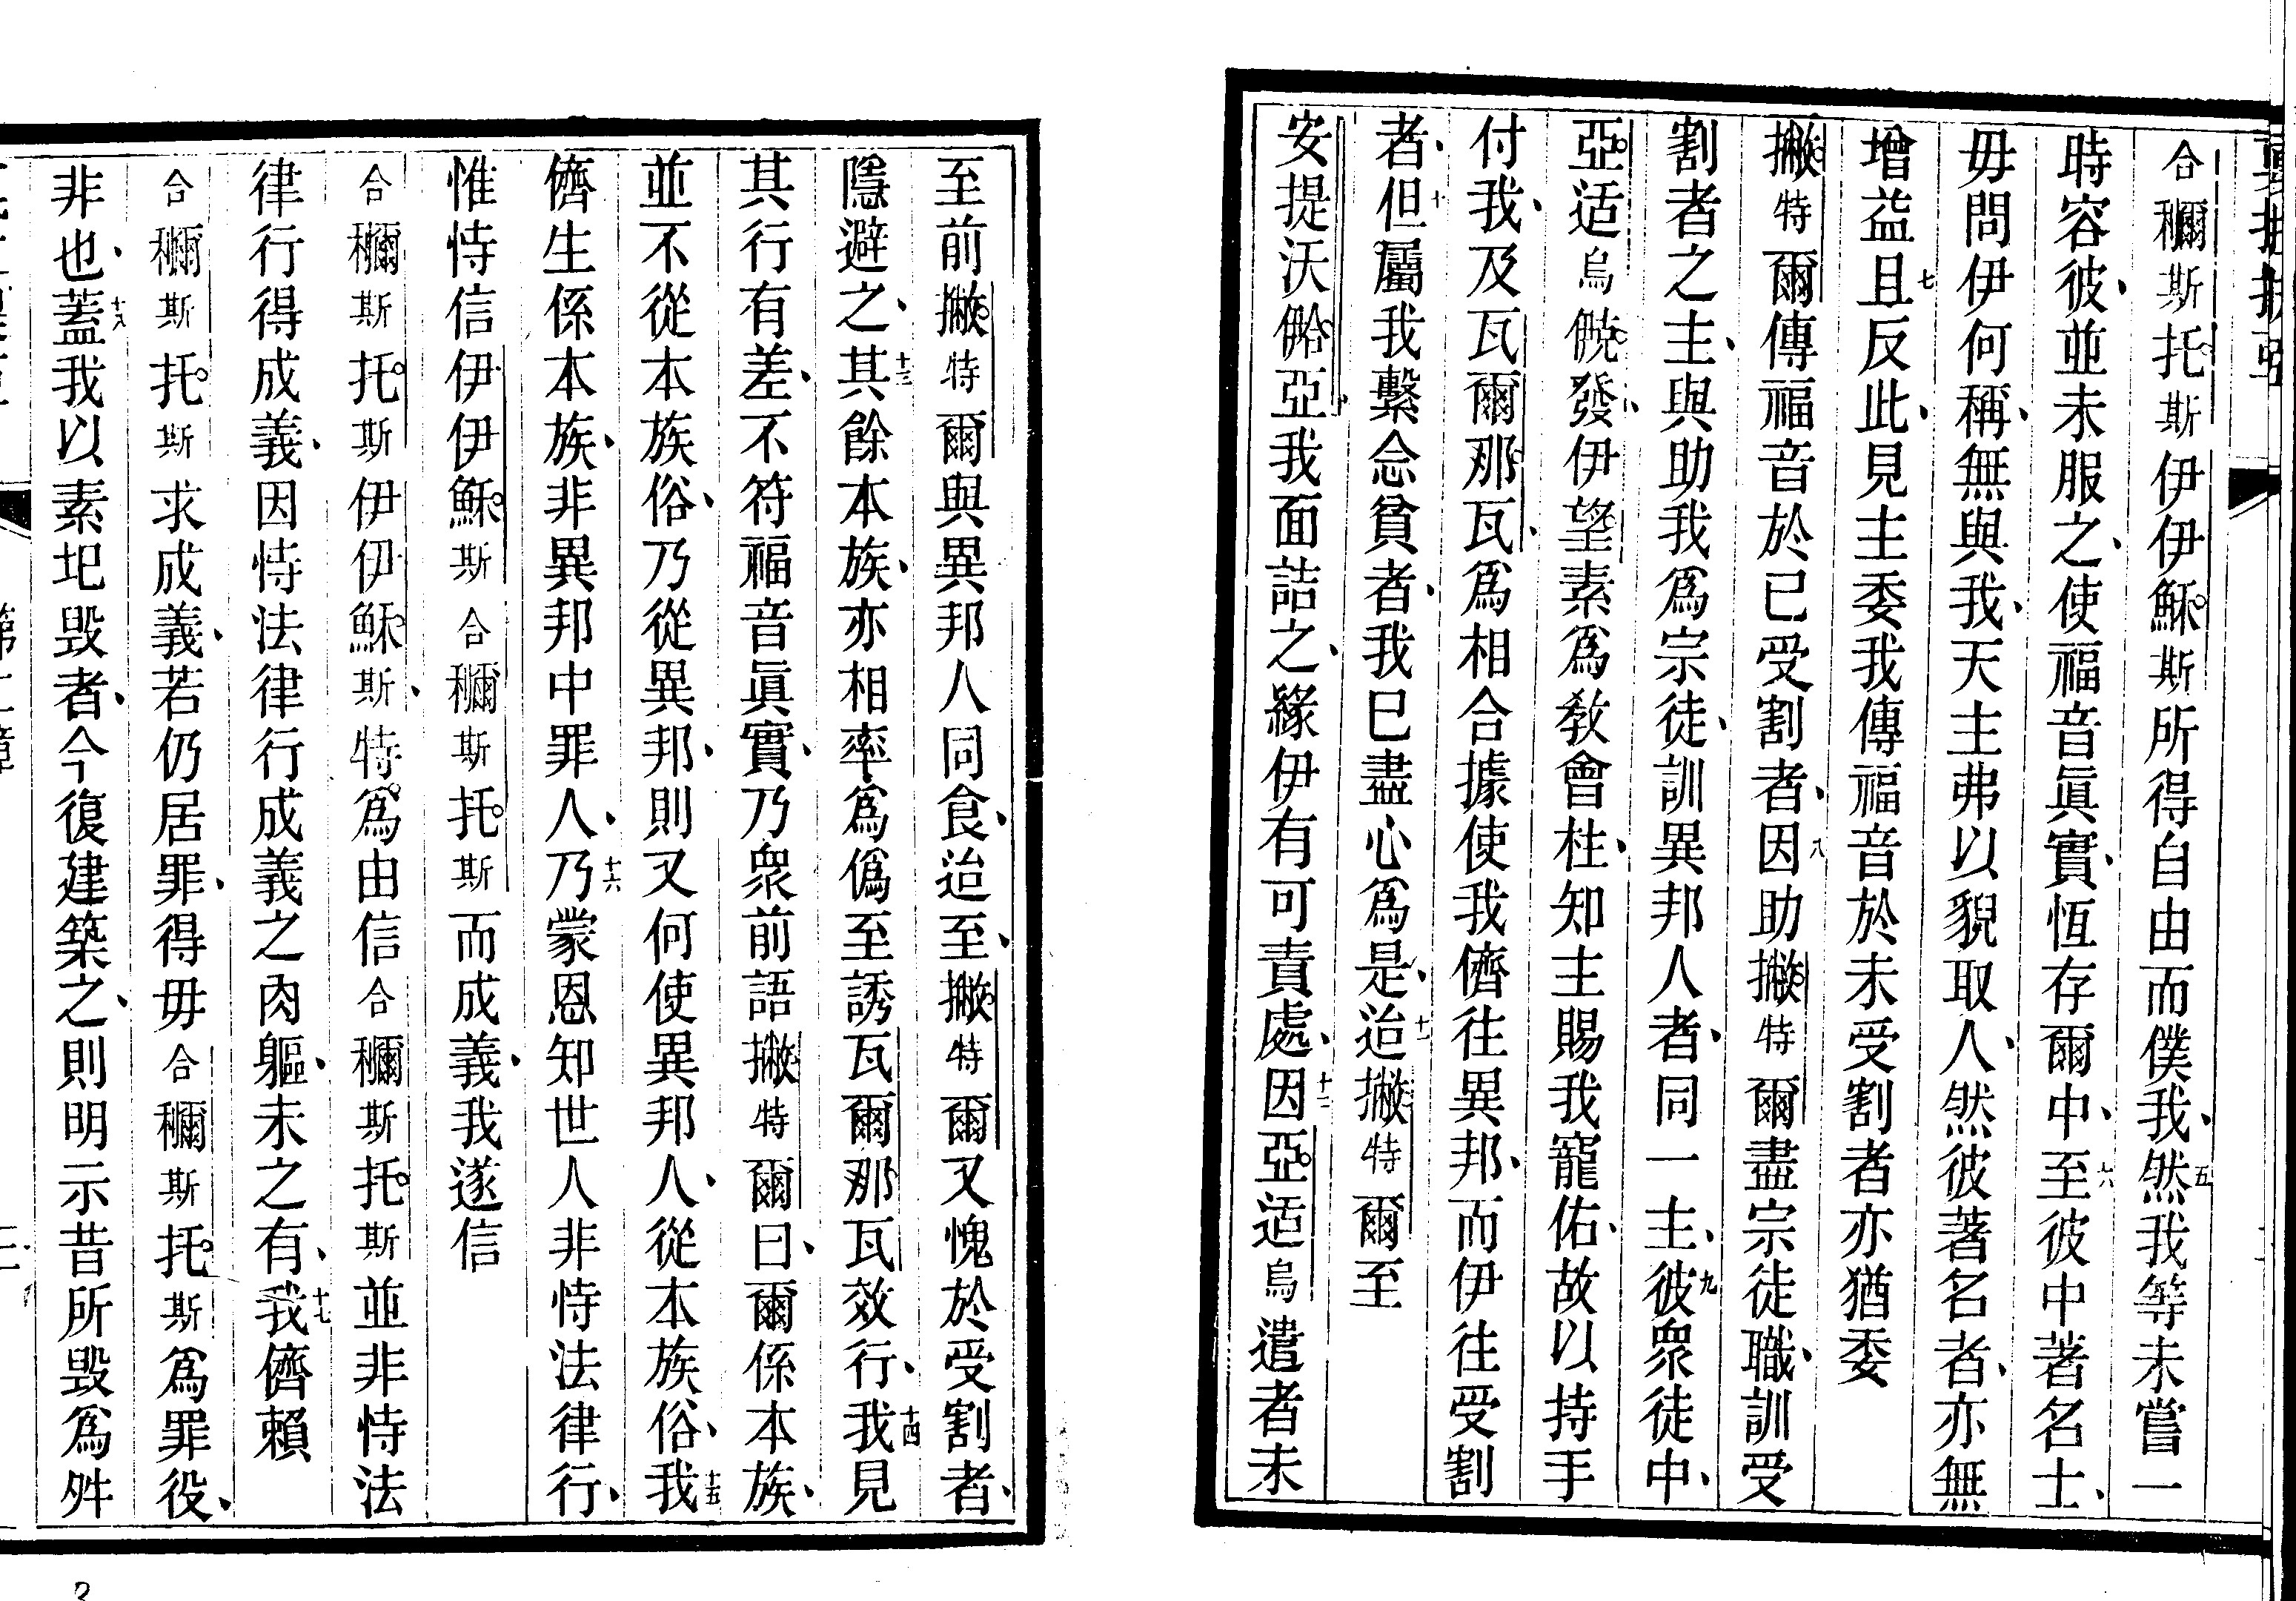 合𧝞斯托斯伊伊穌斯所得自由而僕我、五然我等未嘗一
時容彼、並未服之、使福音眞實、恆存爾中、六至彼中著名士、
毋問伊何稱、無與我、天主弗以貌取人、然彼著名者、亦無
增益、七且反此、見主委我傳福音於未受割者亦猶委
撇特爾傳福音於已受割者、八因助撇特爾盡宗徒職、訓受
割者之主、與助我爲宗徒、訓異邦人者、同一主、九彼衆徒中、
亞适烏發伊望素爲敎會柱、知主賜我寵佑、故以持手
付我、及瓦爾那瓦、爲相合據使我儕往異邦、而伊往受割
者、十但屬我繫念貧者、我已盡心爲是、十一迨撇特爾至
安提沃亞、我面詰之、緣伊有可責處、十二因亞适烏遣者未
至前撇特爾與異邦人同食、迨至、撇特爾又愧於受割者、
隱避之、十三其餘本族、亦相率爲僞至誘瓦爾那瓦效行、十四我見
其行有差、不符福音眞實、乃衆前語撇特爾曰、爾係本族、
並不從本族俗、乃從異邦、則又何使異邦人、從本族俗、十五我
儕生係本族、非異邦中罪人、十六乃蒙恩知世人非恃法律行、
惟恃信伊伊穌斯合𧝞斯托斯而成義、我遂信
合𧝞斯托斯伊伊穌斯、特爲由信合𧝞斯托斯並非恃法
律行得成義、因恃法律行成義之肉軀、未之有、十七我儕賴
合𧝞斯托斯求成義、若仍居罪、得毋合𧝞斯托斯爲罪役、
非也、十八蓋我以素圯毀者、今復建築之、則明示昔所毀爲舛